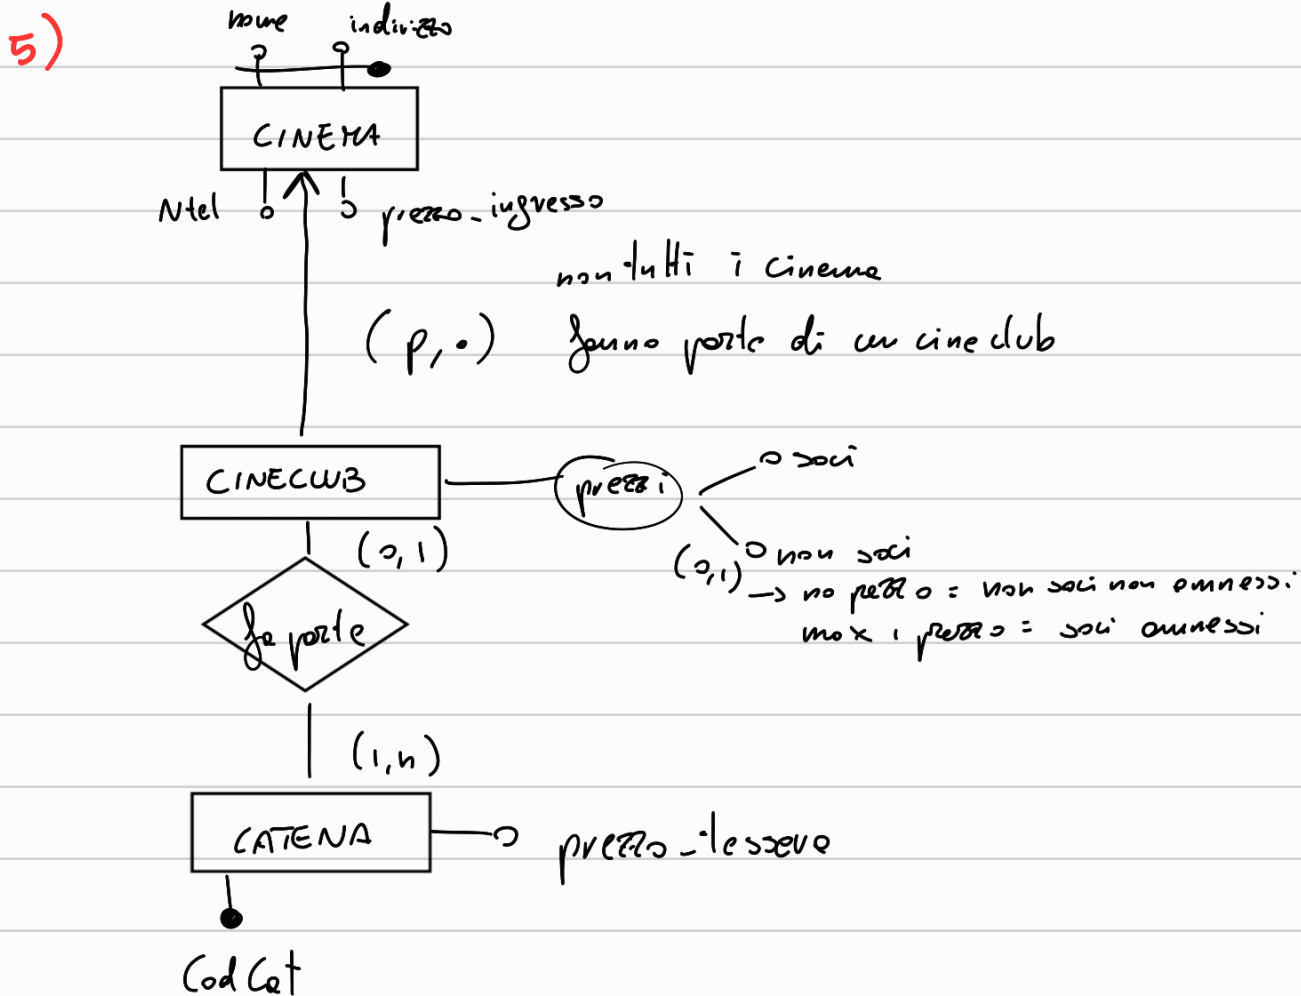 5)
nome indirizzo
CINEMA
Ntel prezzo_ingresso
non tutti i cinema
(p, •) fanno parte di un cineclub
CINECLUB prezzi soci
(0,1) non soci
(0,1) → no prezzo = non soci non ammessi
fa parte max 1 prezzo = soci ammessi
(1,n)
CATENA prezzo_tessera
CodCat